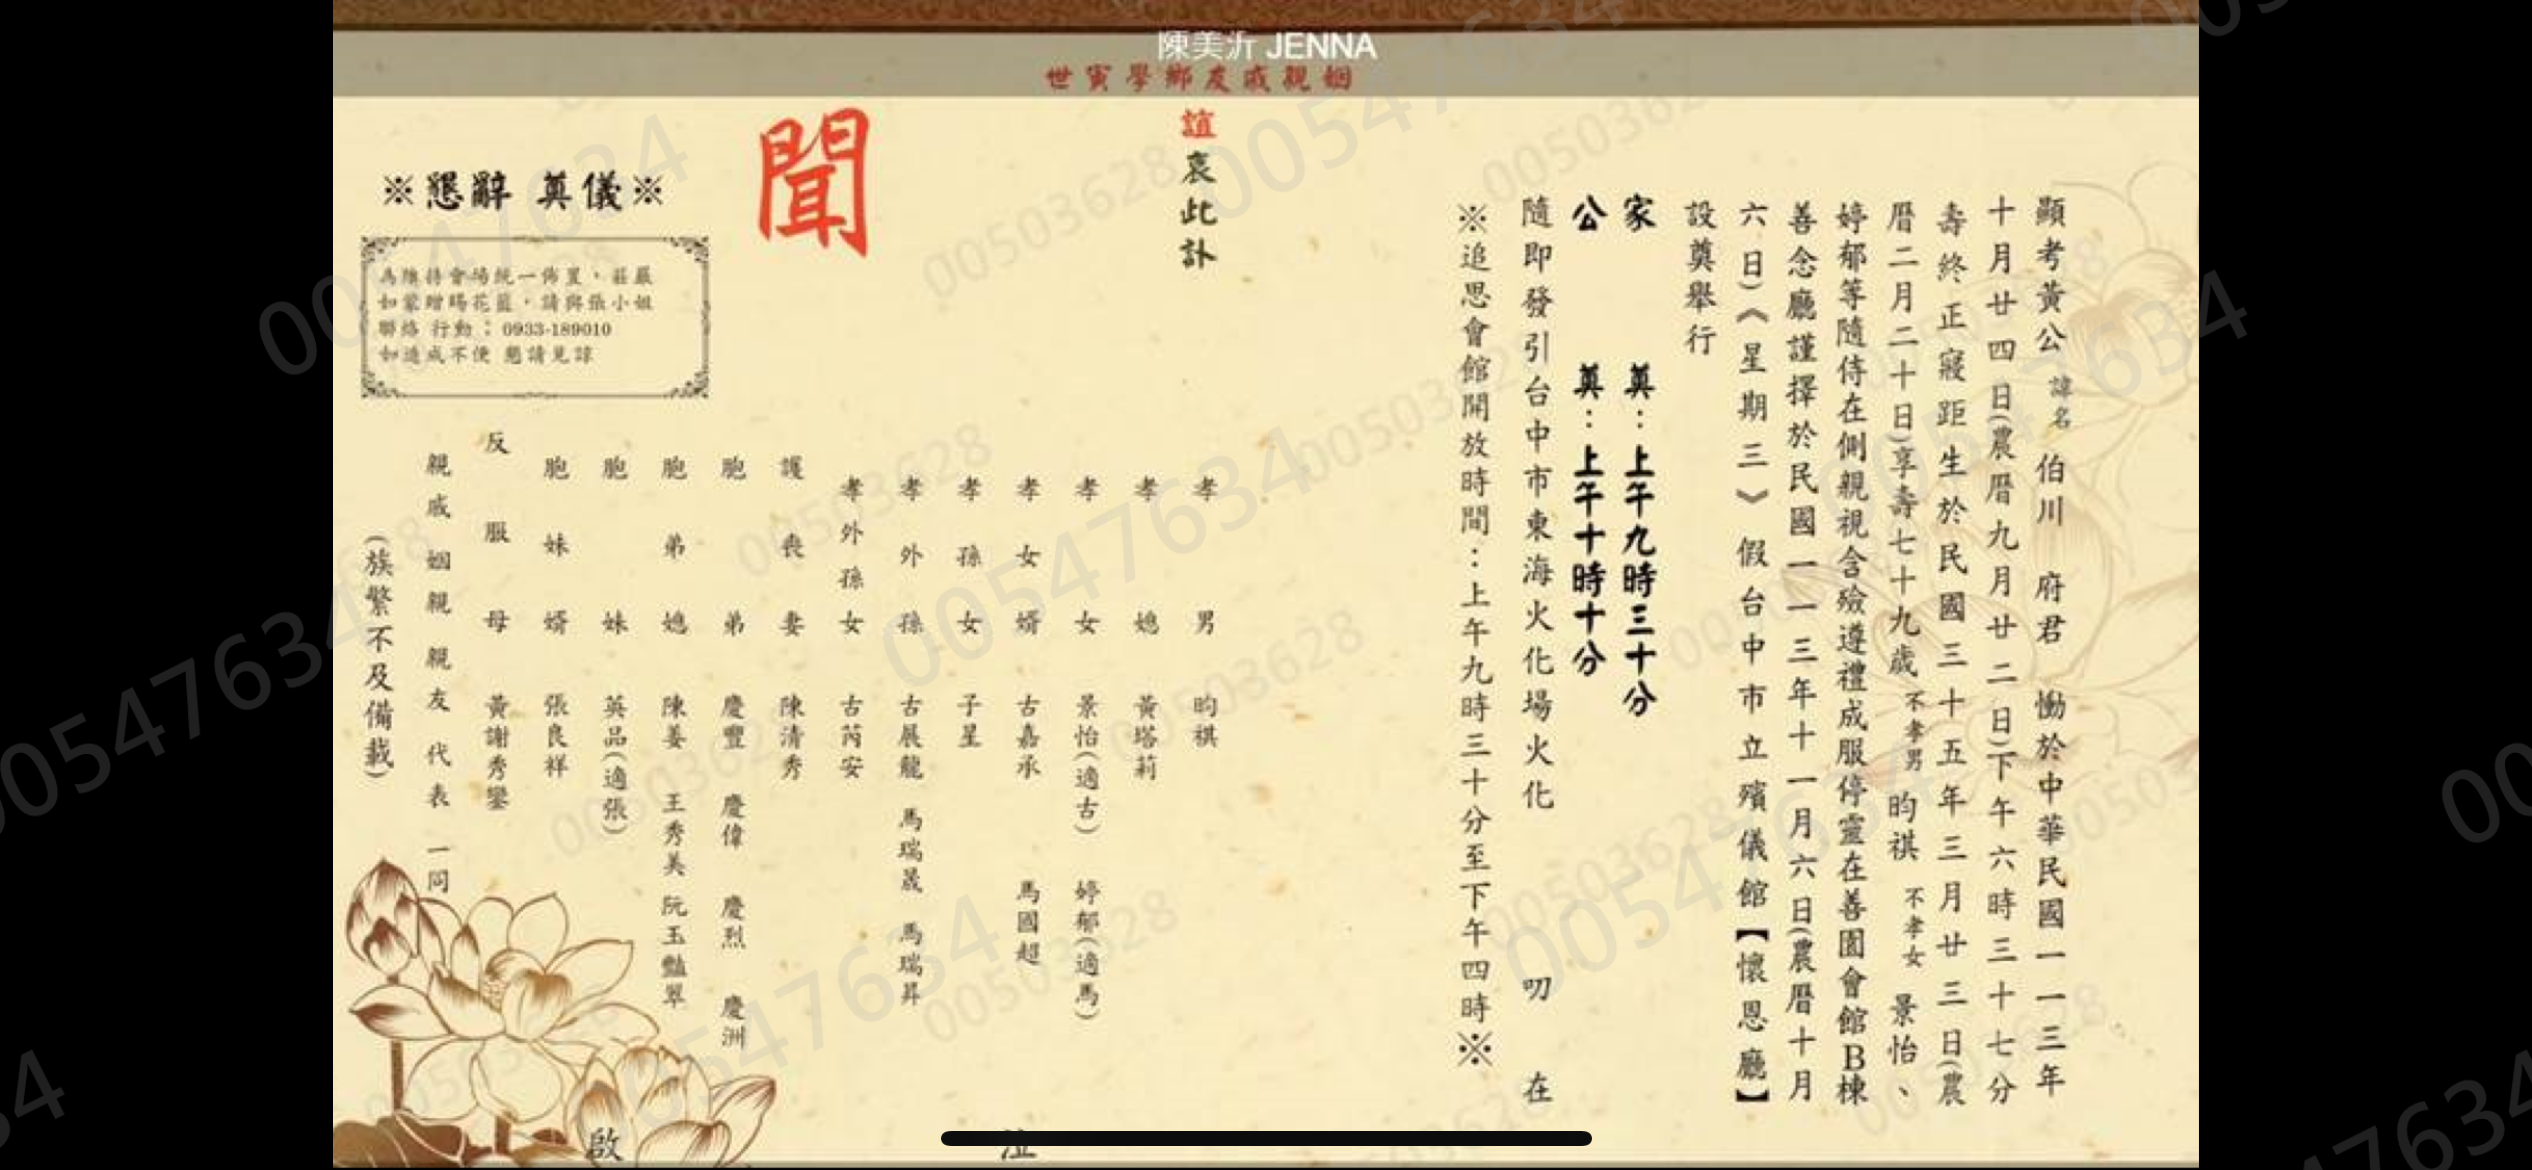 陳美沂 JENNA
顯考黃公 諱名 伯川 府君 慟於中華民國一一三年
十月廿四日(農曆九月廿二日)下午六時三十七分
壽終正寢距生於民國三十五年三月廿三日(農
曆二月二十日)享壽七十九歲 不孝男 昀祺 不孝女 景怡、
婷郁等隨侍在側親視含殮遵禮成服停靈在善園會館B棟
善念廳謹擇於民國一一三年十一月六日(農曆十月
六日)《星期三》假台中市立殯儀館【懷恩廳】
設奠舉行
家 奠:上午九時三十分
公 奠:上午十時十分
隨即發引台中市東海火化場火化 叨 在
※追思會館開放時間:上午九時三十分至下午四時※
姻親戚友鄉學寅世
誼哀此訃
聞
孝男 昀祺
孝媳 黃塔莉
孝女 景怡(適古) 婷郁(適馬)
孝女婿 古嘉承 馬國超
孝孫女 子星
孝外孫 古展龍 馬瑞晟 馬瑞昇
孝外孫女 古芮安
護喪妻 陳清秀
胞弟 慶豐 慶偉 慶烈 慶洲
胞弟媳 陳姜 王秀美 阮玉豔翠
胞妹 英品(適張)
胞妹婿 張良祥
反服母 黃謝秀鑾
親戚姻親親友代表一同
(族繁不及備載)
泣
啟
※懇辭 奠儀※
為維持會場統一佈置,莊嚴
如蒙贈賜花籃,請與張小姐
聯絡 行動:0933-189010
如造成不便 懇請見諒
00547634
00503628